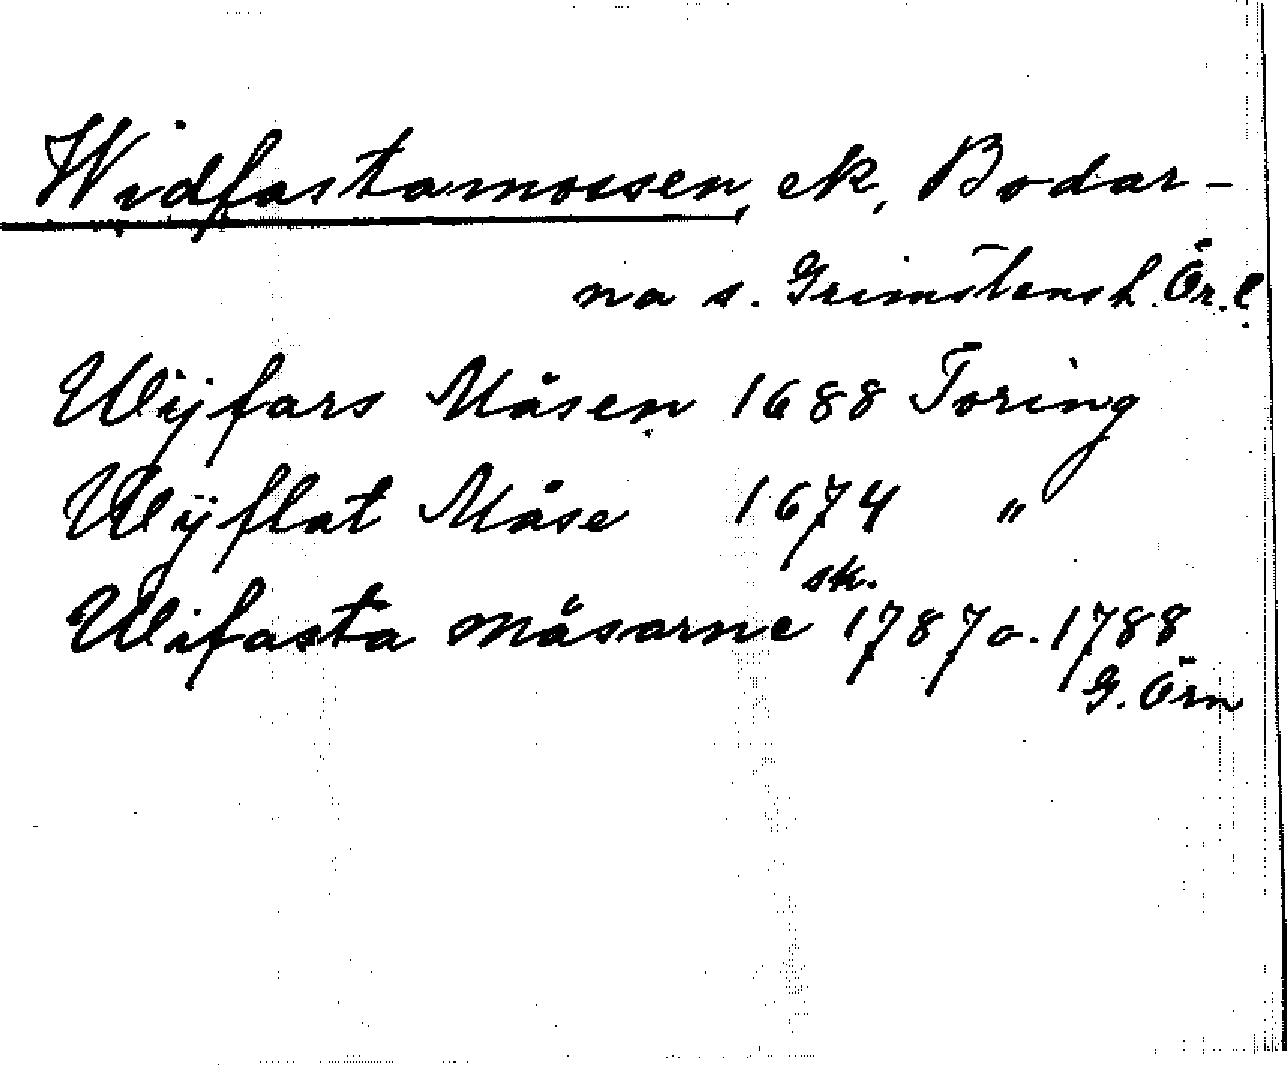 Widfastamossen, ek, Bodar-
na s. Grimstens h. Ör. l.
Wijfars Måsen 1688 Toring
Wijflat Måse 1674 "
sk.
Wifasta måsarne 1787 o. 1788
G. Örn